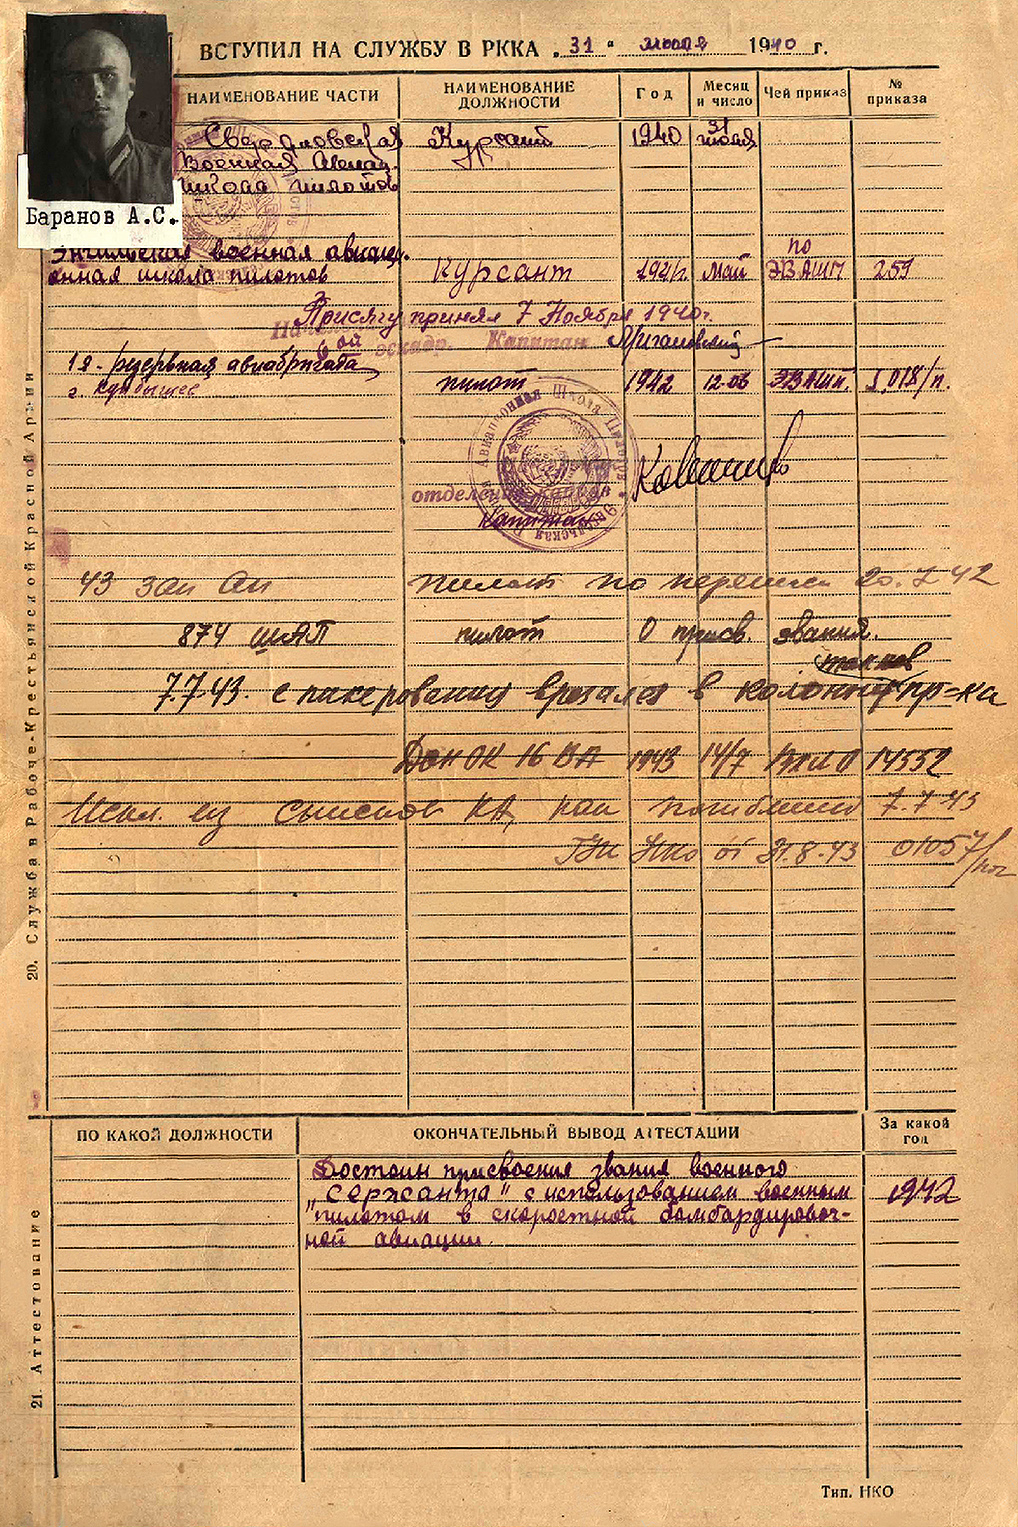 ВСТУПИЛ НА СЛУЖБУ В РККА „31" июля 1940 г.
НАИМЕНОВАНИЕ ЧАСТИ
НАИМЕНОВАНИЕ ДОЛЖНОСТИ
Год
Месяц и число
Чей приказ
№ приказа
Баранов А.С.
Свердловская Курсант 1940 31 июля
Военная Авиац.
школа пилотов
Энгельская военная авиаци-
онная школа пилотов Курсант 1941г. май по ЭВАШП 259
Присягу принял 7 Ноября 1940г.
эскадр. Капитан
1я - резервная авиабригада
г. Куйбышев пилот 1942 12.06 ЭВАШП. 1,018/п.
Авиационная Школа Пилотов
отделения кадров
Капитан
43 зап Ап пилот по переписи 20.7 42
874 шАП пилот О присв. звания.
танков
7.7.43. с пикирования врезался в колонну пр-ка
Дон ОК 16 ВА 1943 14/7 14552
Искл. из списков КА, как погибший 7.7.43
ГУК НКО от 31.8.43 01057/пог
20. Служба в Рабоче-Крестьянской Красной Армии
ПО КАКОЙ ДОЛЖНОСТИ
ОКОНЧАТЕЛЬНЫЙ ВЫВОД АТТЕСТАЦИИ
За какой год
Достоин присвоения звания военного
"сержанта" с использованием военным 1942
"пилотом в скоростной бомбардировоч-
ной авиации.
21 Аттестование
Тип. НКО